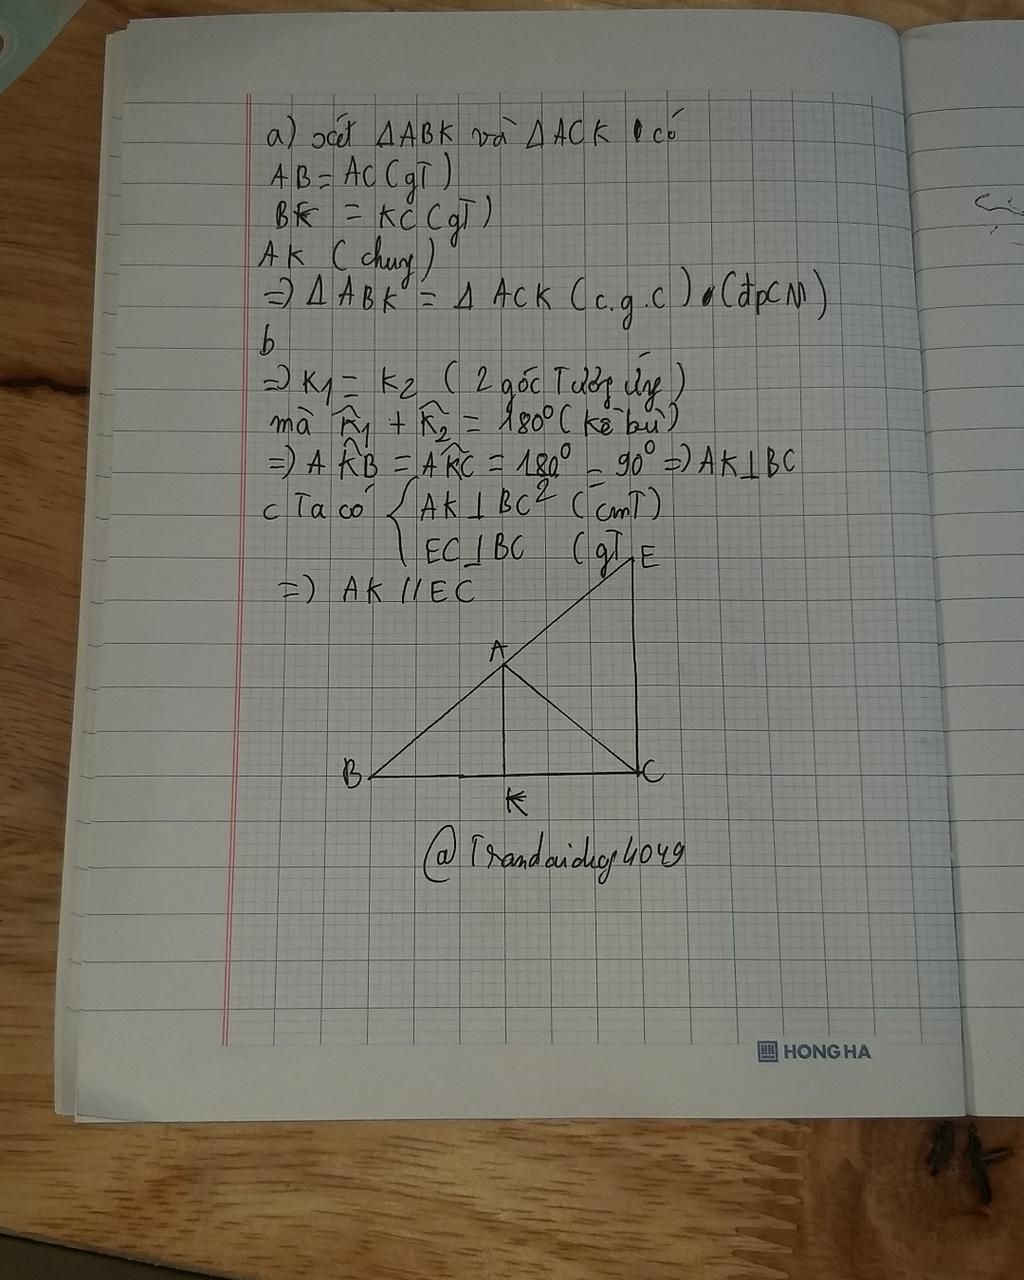 a) xét ΔABK và ΔACK có
AB = AC (gT)
BK = KC (gT)
AK (chung)
=> Δ ABK = Δ ACK (c.g.c) (đpCM)
b
=> K1 = K2 (2 góc Tương ứng)
mà K̂1 + K̂2 = 180° (kề bù)
=> AK̂B = AK̂C = 180°/2 = 90° => AK ⊥ BC
c Ta có { AK ⊥ BC (cmT)
EC ⊥ BC (gT)
=> AK // EC
E
A
B
C
K
@Trandaidug4049
HONG HA